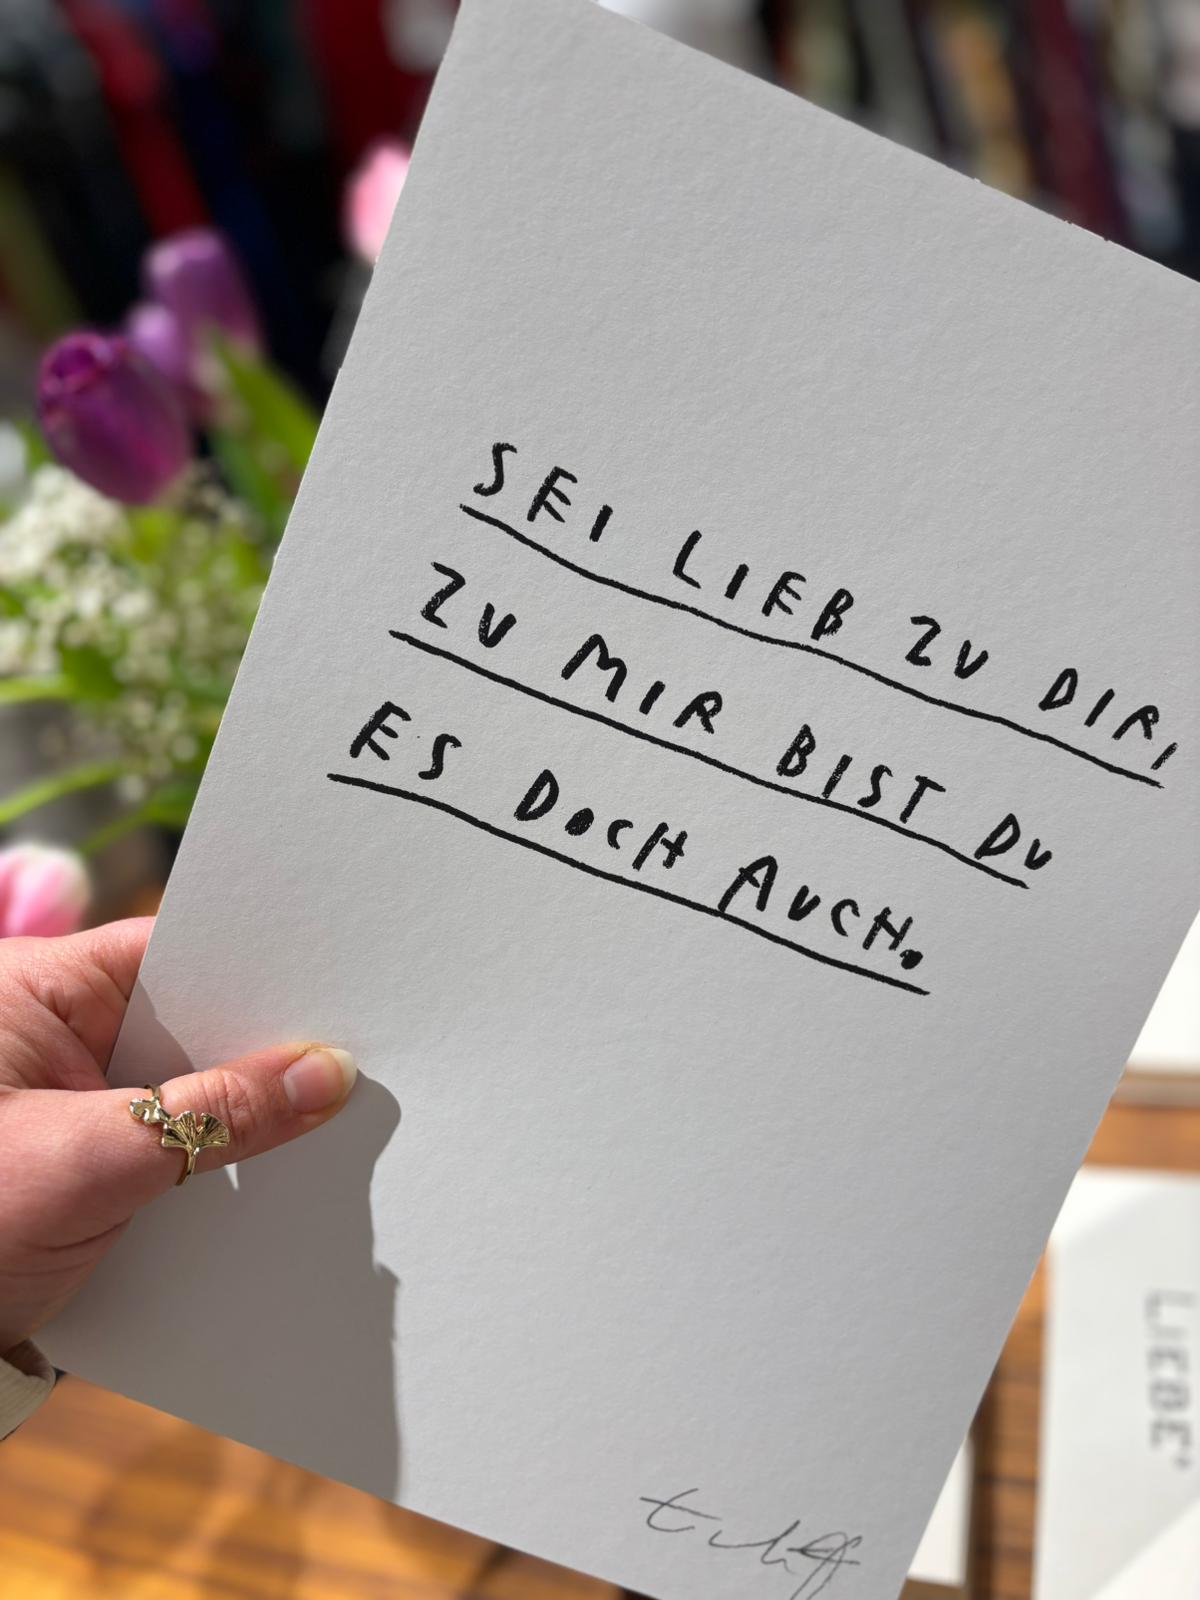 SEI LIEB ZU DIR,
ZU MIR BIST DU
ES DOCH AUCH.
LIEBE